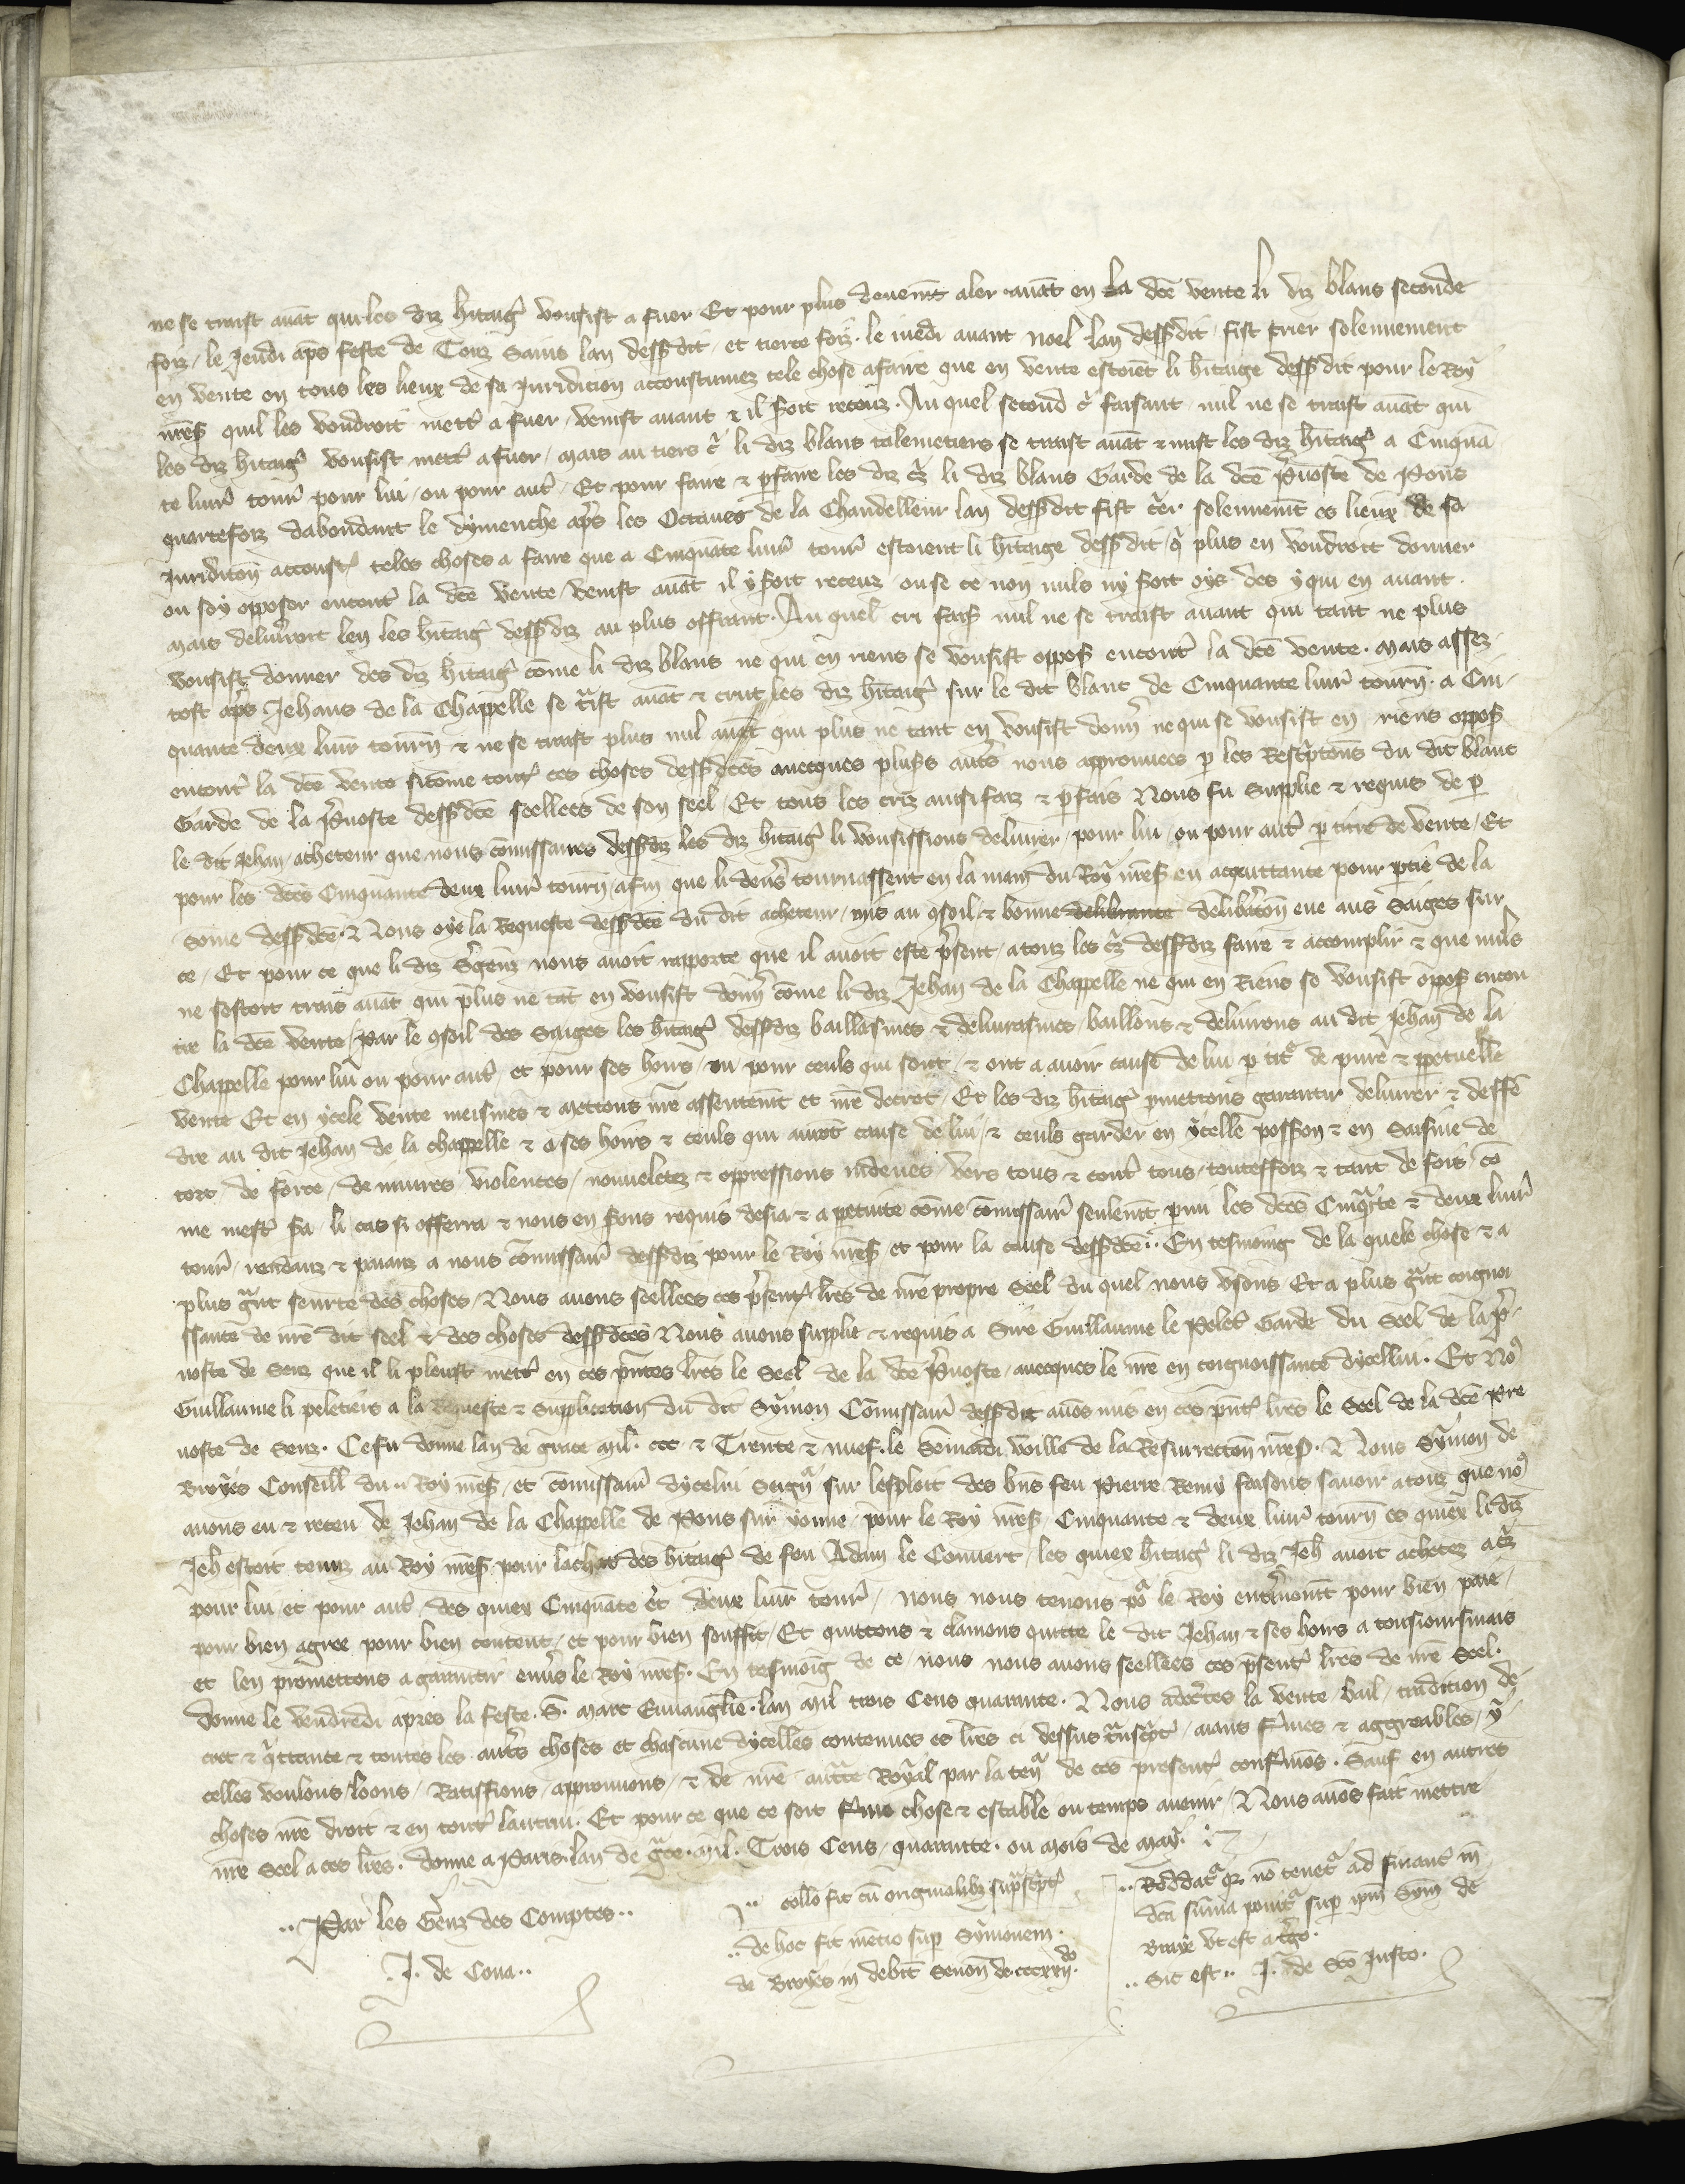 ne se traist auãt qui les diz hitaigˢ vousist a fuer Et pour plus deuemt aler auãt en la dcẽ vente li diz blans seconde
foiz le Jeudi apˢ feste de Touz Sains lan dessˢdit et tierce foiz le iuedi auant noel lan dessˢdit fist crier solennement
en vente en tous les lieux de sa Juridicion acoustumez tele chose a faire que en vente estoiẽt li hitaige dessˢdit pour le Roy
nr̃eſ quil les voudroit mettˢ a fuer venist auant & il soit receuz. Au quel second cˢ faisant nul ne se traist auãt qui
les diz hitaigˢ vousist mettˢ a fuer mais au tiers cˢ li diz blans talemetiers se traist auãt & mist les diz hitaigˢ a Cinquã
te liurˢ tourˢ pour lui ou pour autˢ Et pour faire & pfaire les diz cˢz li diz blans Garde de la dcẽ Pˢuoste de Pons
quartefoiz dabondant le dymenche apˢs les Octaues de la Chandelleur lan dessˢdit fist cˢer solennemt es lieux de sa
Juriditon acoustˢ teles choses a faire que a Cinquãte liurˢ tourˢ estoient li hitaige dessˢdit qˢ plus en voudroit donner
ou soy opposer encontˢ la dcẽ vente venist auãt il y soit receuz ou se ce non nuls ny soit oys des yqui en auant.
mais deliurroit len les hitaigˢ dessˢdiz au plus offrant. Au quel cri faisˢ nul ne se traist auant qui tant ne plus
vousist donner des diz hitaigˢ cõme li diz blans ne qui en riens se vousist opposˢ encontˢ la dcẽ vente. mais assez
tost apˢs Jehans de la Chappelle se tˢist auãt & crut les diz hitaigˢ sur le dit blanc de Cinquante liurˢ tourñ. a Cin
quante deux liurˢ tourñ & ne se traist plus nul auãt qui plus ne tant en vousist donñ ne qui se vousist en riens opposˢ
encontˢ la dcẽ vente sicõme toutˢ ces choses dessˢdcẽs auecques plusˢs autˢs nous approuuees p les Rescˢptons du dit blanc
Garde de la Pˢuoste dessˢdcẽ seellees de son seel Et tous les criz ausi faiz & pfais Nous fu Supplie & requis de p
le dit Jehan acheteur que nous cõmissaires dessˢdiz les diz hitaigˢ li vousissions deliurer pour lui ou pour autˢ p titre de vente Et
pour les dcẽs Cinquante deux liurˢ tourñ afin que li deñs tournassent en la main du Roy nr̃eſ en acquittante pour ptie de la
some dessˢdcẽ. Nous oye la Requeste dessˢdcẽ du dit acheteur mis au ꝯseil & bonne delibˢaton eue aus Saiges sur
ce Et pour ce que li diz Sˢgenz nous auoit rapporte que il auoit este pˢsent a touz les cˢz dessˢdiz faire & accomplir & que nuls
ne sestoit trais auãt qui plus ne tãt en vousist donñ cõme li diz Jehan de la Chappelle ne qui en Riens se vousist opposˢ encon
tre la dcẽ vente Par le ꝯseil des Saiges les hitaigˢ dessˢdiz baillasmes & deliurasmes baillons & deliurons au dit Jehan de la
Chappelle pour lui ou pour autˢ et pour ses hoirs ou pour ceuls qui sont & ont a auoir cause de lui p titˢ de pure & ppetuelle
vente Et en ycele vente meismes & mettons nr̃e assentemt et nr̃e decret Et les diz hitaigˢ pmettons garantir deliurer & deffẽ
dre au dit Jehan de la chappelle & a ses hoirs & ceuls qui auroĩt cause de lui & ceuls garder en ycelle possˢon & en Saisine de
tort de force de iniures violences nouueletez & oppressions indeues vers tous & contˢ tous toutesfoiz & tant de fois cõ
me mestˢ sˢa li cas si offerra & nous en sˢons requis desia & a petuite cõme cõmissairˢ seulemt pmi les dcẽs Cinqˢte & deux liurˢ
tourˢ renduz & paiez a nous cõmissairˢ dessˢdiz pour le Roy nr̃eſ et pour la cause dessˢdcẽ. En tesmoing de la quele chose & a
plus gˢnt seurte des choses Nous auons seellees ces pˢsentˢ lr̃es de nr̃e propre Seel du quel nous vsons Et a plus gˢnt coignoi
ssance de nr̃e dit seel & des choses dessˢdcẽs Nous auons supplie & requis a Sire Guillaume le Peletˢ Garde du Seel de la Pˢ
uoste de Senz que il li pleust mettˢ en ces pñtes lr̃es le Seel de la dcẽ Pˢuoste auecques le nr̃e en coignoissance dycellui. Et Noˢ
Guillaume li peletiers a la Requeste & Supplication du dit Symon Cõmissairˢ dessˢdit auõs mis en ces pñtˢ lr̃es le Seel de la dcẽ Pre
uoste de Senz. Ce fu donne lan de grace mil. ccc. & Trente & nuef. le Semadi voille de la Resurrecton nr̃eſ. Nous Symon de
Broyes Conseill du Roy nr̃eſ et cõmissairˢ dyceluis Seignˢ sur lesploit des bñs feu Pierre Remy faisons sauoir a touz que noˢ
auons eu & receu de Jehan de la Chappelle de Pons sur yonne pour le Roy nr̃eſ Cinquante & deux liurˢ tourñ es quiex li diz
Jeh estoit tenuz au Roy nr̃eſ pour lachat des hitaigˢ de feu Adam le Conuert les quiex hitaigˢ li diz Jeh auoit achetez a cˢz
pour lui et pour autˢ des quiex Cinquãte et deux liurˢ tourˢ nous nous tenons poˢ le Roy entˢinemt pour bien paie
pour bien agree pour bien content et pour bien souffit Et quittons & clamons quitte le dit Jehan & ses hoirs a tousiours mais
et len promettons a garantir enuˢs le Roy nr̃eſ. En tesmoig de ce nous nous auons seellees ces pˢsentˢ lr̃es de nr̃e Seel.
donne le vendredi apres la feste. S. marc Euuangˢlie. lan mil trois Cens quarante. Nous adcˢtes la vente bail tradicion de
cret & qˢttance & toutes les autˢs choses et chascune dycelles contenues es lr̃es ci dessus tˢnscˢptˢ aians fˢmes & aggreables y
celles voulons loons Ratiffions approuuons & de nr̃e auctˢte Royal par la tenˢ de ces presentˢ confˢmõs. Sauf en autres
choses nr̃e droit & en toutˢ lautrui. Et pour ce que ce soit fˢme chose & estable ou temps auenir Nous auõs fait mettre
nr̃e Seel a ces lr̃es. donne a Paris lan de gˢce mil. Trois Cens quarante. ou mois de may.
Par les Genz des Comptes
J. de Cona
collõ fit cũ originalibȝ supˢscˢptˢ
de hoc fit mẽcio sup Symonem
de Broyes in debit Senoñ de cccxxij do
Reddatˢ qˢ nõ tenetˢ ad financˢ ñ
dcã sũma ponitˢ sup ipm̃ Sym̃ de
Braye vt est a tˢgo.
Sic est J. de Sco Justo.